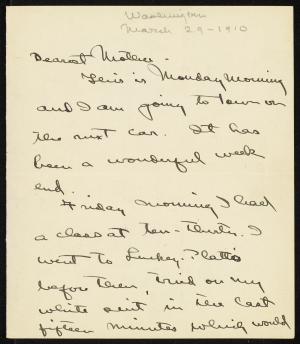 Washington
March 29-1910
Dearest Mother-
This is Monday morning
and I am going to town on
the next car. It has
been a wonderful week
end.
Friday morning I had
a class at ten-thirty. I
went to Luckey-Platt's
before then, tried on my
white suit in the last
fifteen minutes which would